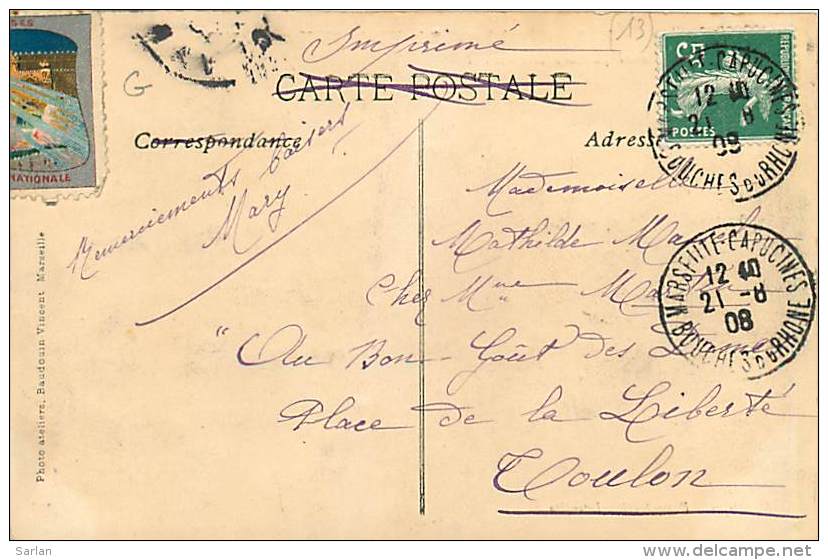 Imprimé
(13)
CARTE POSTALE
G
Correspondance
Adresse
NATIONALE
5c
POSTES
MARSEILLE-CAPUCINES
12 40
21 -8
09
BOUCHES DU RHONE
Remerciements baisers
Mary
Mademoiselle
Mathilde
Chez Mme
"Au Bon Goût des Dames
Place de la Liberté
Toulon
MARSEILLE-CAPUCINES
12 40
21 -8
08
BOUCHES DU RHONE
Photo ateliers, Baudouin Vincent Marseille
Sarlan
www.delcampe.net